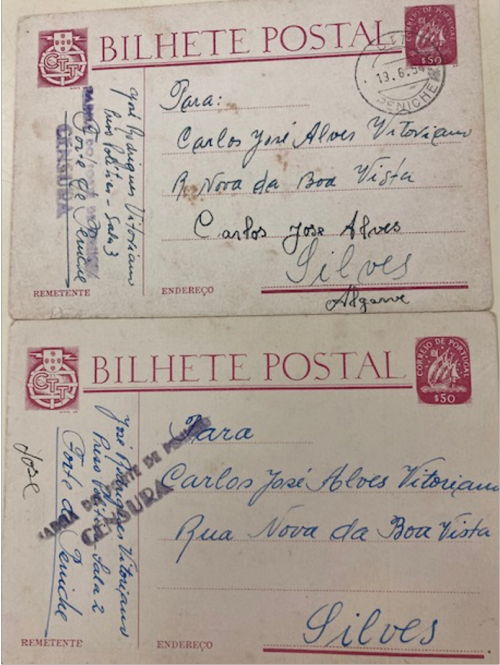 CTT
BILHETE POSTAL
CORREIO DE PORTUGAL
$50
19.6.54
PENICHE
José Rodrigues Vitoriano
Preso Político - Sala 3
Forte de Peniche
CENSURA
REMETENTE
Para:
Carlos José Alves Vitoriano
R. Nova da Boa Vista
Carlos Jose Alves
Silves
Algarve
ENDEREÇO
CTT
BILHETE POSTAL
CORREIO DE PORTUGAL
$50
José Rodrigues Vitoriano
Preso Político - Sala 2
Forte de Peniche
José
CADEIA DO FORTE DE PENICHE
CENSURA
REMETENTE
Para
Carlos José Alves Vitoriano
Rua Nova da Boa Vista
Silves
ENDEREÇO